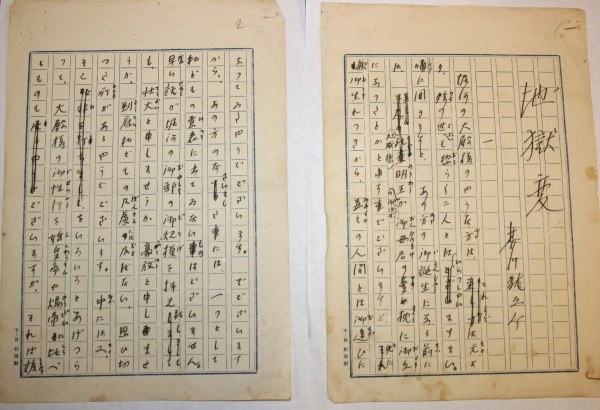 地獄變
芥川龍之介
一
堀河の大殿様のやうな方は、これまでは元よ
り、後の世にも恐らく二人とはいらつしやいますまい。
噂に聞きますと、あの方の御誕生になる前に
は、大威徳明王が御母君の夢枕に御立
にあつたとか申す事でございますが、兎に
角御生れつきから、並々の人間とは御違ひに
2
なつてゐたやうでございます。でございます
から、あの方のなさいました事には、一つとして
私どもの意表に出てゐないものはございません。
早い話が堀河の御邸の御規模を拝見致しまして
も、壮大と申しませうか、豪放と申しませ
うか、到底私どもの凡慮には及ばない、思ひ切
つた所があるやうでございます。中にはまた、
そこをいろいろとあげつら
つて、大殿様の御性行を始皇帝や煬帝に比べ
るものもございますが、それは諺